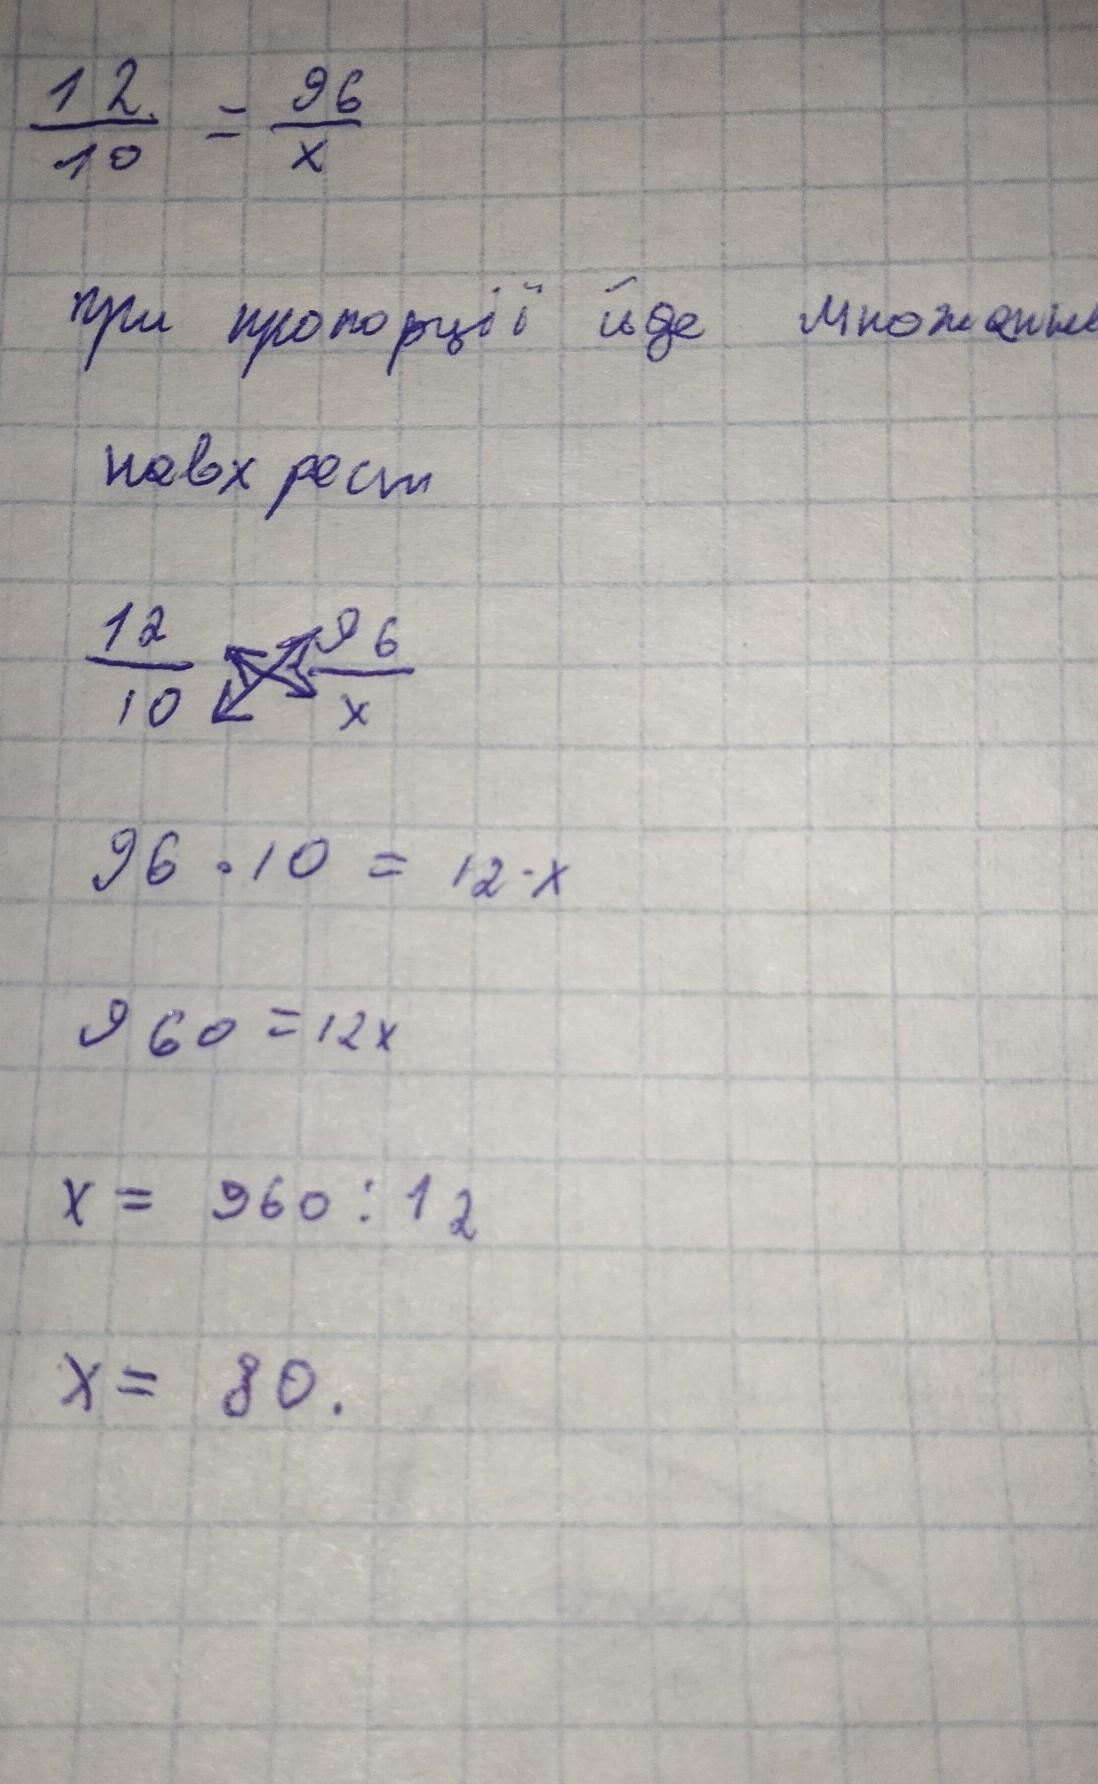 12/10 = 96/x
при пропорції йде множення
навхрест
12/10 96/x
96 · 10 = 12 · x
960 = 12x
x = 960 : 12
x = 80.